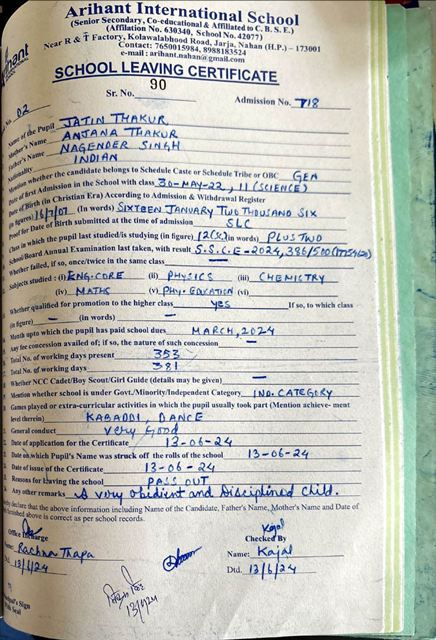 Arihant International School
(Senior Secondary, Co-educational & Affiliated to C. B. S. E.)
(Affilation No. 630340, School No. 42077)
Near R & T Factory, Kolawalabhood Road, Jarja, Nahan (H.P.) – 173001
Contact: 7650015984, 8988183524
e-mail : arihant.nahan@gmail.com
SCHOOL LEAVING CERTIFICATE
Sr. No. 90
Admission No. 718
No. 02
Name of the Pupil JATIN THAKUR
Mother's Name ANJANA THAKUR
Father's Name NAGENDER SINGH
Nationality INDIAN
Mention whether the candidate belongs to Schedule Caste or Schedule Tribe or OBC GEN
Date of first Admission in the School with class 30-MAY-22, 11 (SCIENCE)
Date of Birth (in Christian Era) According to Admission & Withdrawal Register
(in figures) (in words) SIXTEEN JANUARY TWO THOUSAND SIX
Proof for Date of Birth submitted at the time of admission SLC
Class in which the pupil last studied/is studying (in figure) 12 (in words) PLUS TWO
School/Board Annual Examination last taken, with result S.S.C.E-2024, 386/500
Whether failed, if so, once/twice in the same class —
Subjects studied : (i) ENG.CORE (ii) PHYSICS (iii) CHEMISTRY
(iv) MATHS (v) PHY. EDUCATION (vi)
Whether qualified for promotion to the higher class yes If so, to which class
(in figure) — (in words) —
Month upto which the pupil has paid school dues MARCH, 2024
Any fee concession availed of; if so, the nature of such concession —
Total No. of working days present 353
Total No. of working days 381
Whether NCC Cadet/Boy Scout/Girl Guide (details may be given) —
Mention whether school is under Govt./Minority/Independent Category IND. CATEGORY
Games played or extra-curricular activities in which the pupil usually took part (Mention achieve- ment
level therein) KABADDI, DANCE
General conduct very Good
Date of application for the Certificate 13-06-24
Date on which Pupil's Name was struck off the rolls of the school 13-06-24
Date of issue of the Certificate 13-06-24
Reasons for leaving the school PASS OUT
Any other remarks A very obidient and Disciplined child.
declare that the above information including Name of the Candidate, Father's Name, Mother's Name and Date of
furnished above is correct as per school records.
Office Incharge
Kajal
Checked By
Name: Rachna Thapa
Name: Kajal
Dtd. 13/6/24
Dtd. 13/6/24
13/6/24